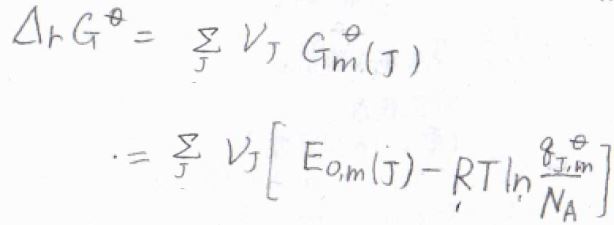 ΔrG^θ = Σ_J ν_J G_m^θ(J)
∴ = Σ_J ν_J [ E_{0,m}(J) − RT ln (q_{J,m}^θ / N_A) ]